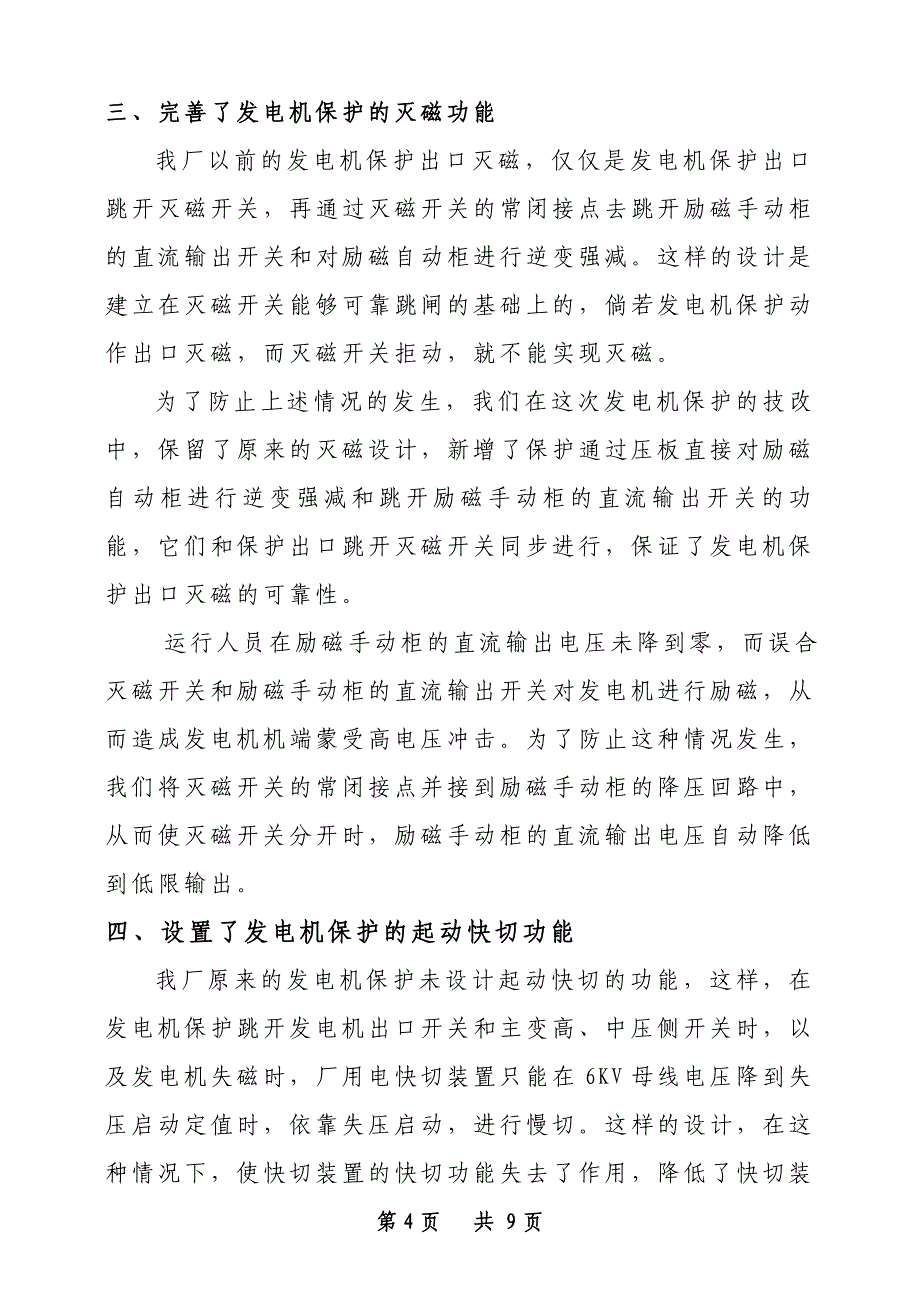 三、完善了发电机保护的灭磁功能
我厂以前的发电机保护出口灭磁，仅仅是发电机保护出口
跳开灭磁开关，再通过灭磁开关的常闭接点去跳开励磁手动柜
的直流输出开关和对励磁自动柜进行逆变强减。这样的设计是
建立在灭磁开关能够可靠跳闸的基础上的，倘若发电机保护动
作出口灭磁，而灭磁开关拒动，就不能实现灭磁。
为了防止上述情况的发生，我们在这次发电机保护的技改
中，保留了原来的灭磁设计，新增了保护通过压板直接对励磁
自动柜进行逆变强减和跳开励磁手动柜的直流输出开关的功
能，它们和保护出口跳开灭磁开关同步进行，保证了发电机保
护出口灭磁的可靠性。
运行人员在励磁手动柜的直流输出电压未降到零，而误合
灭磁开关和励磁手动柜的直流输出开关对发电机进行励磁，从
而造成发电机机端蒙受高电压冲击。为了防止这种情况发生，
我们将灭磁开关的常闭接点并接到励磁手动柜的降压回路中，
从而使灭磁开关分开时，励磁手动柜的直流输出电压自动降低
到低限输出。
四、设置了发电机保护的起动快切功能
我厂原来的发电机保护未设计起动快切的功能，这样，在
发电机保护跳开发电机出口开关和主变高、中压侧开关时，以
及发电机失磁时，厂用电快切装置只能在 6KV 母线电压降到失
压启动定值时，依靠失压启动，进行慢切。这样的设计，在这
种情况下，使快切装置的快切功能失去了作用，降低了快切装
第 4 页 共 9 页